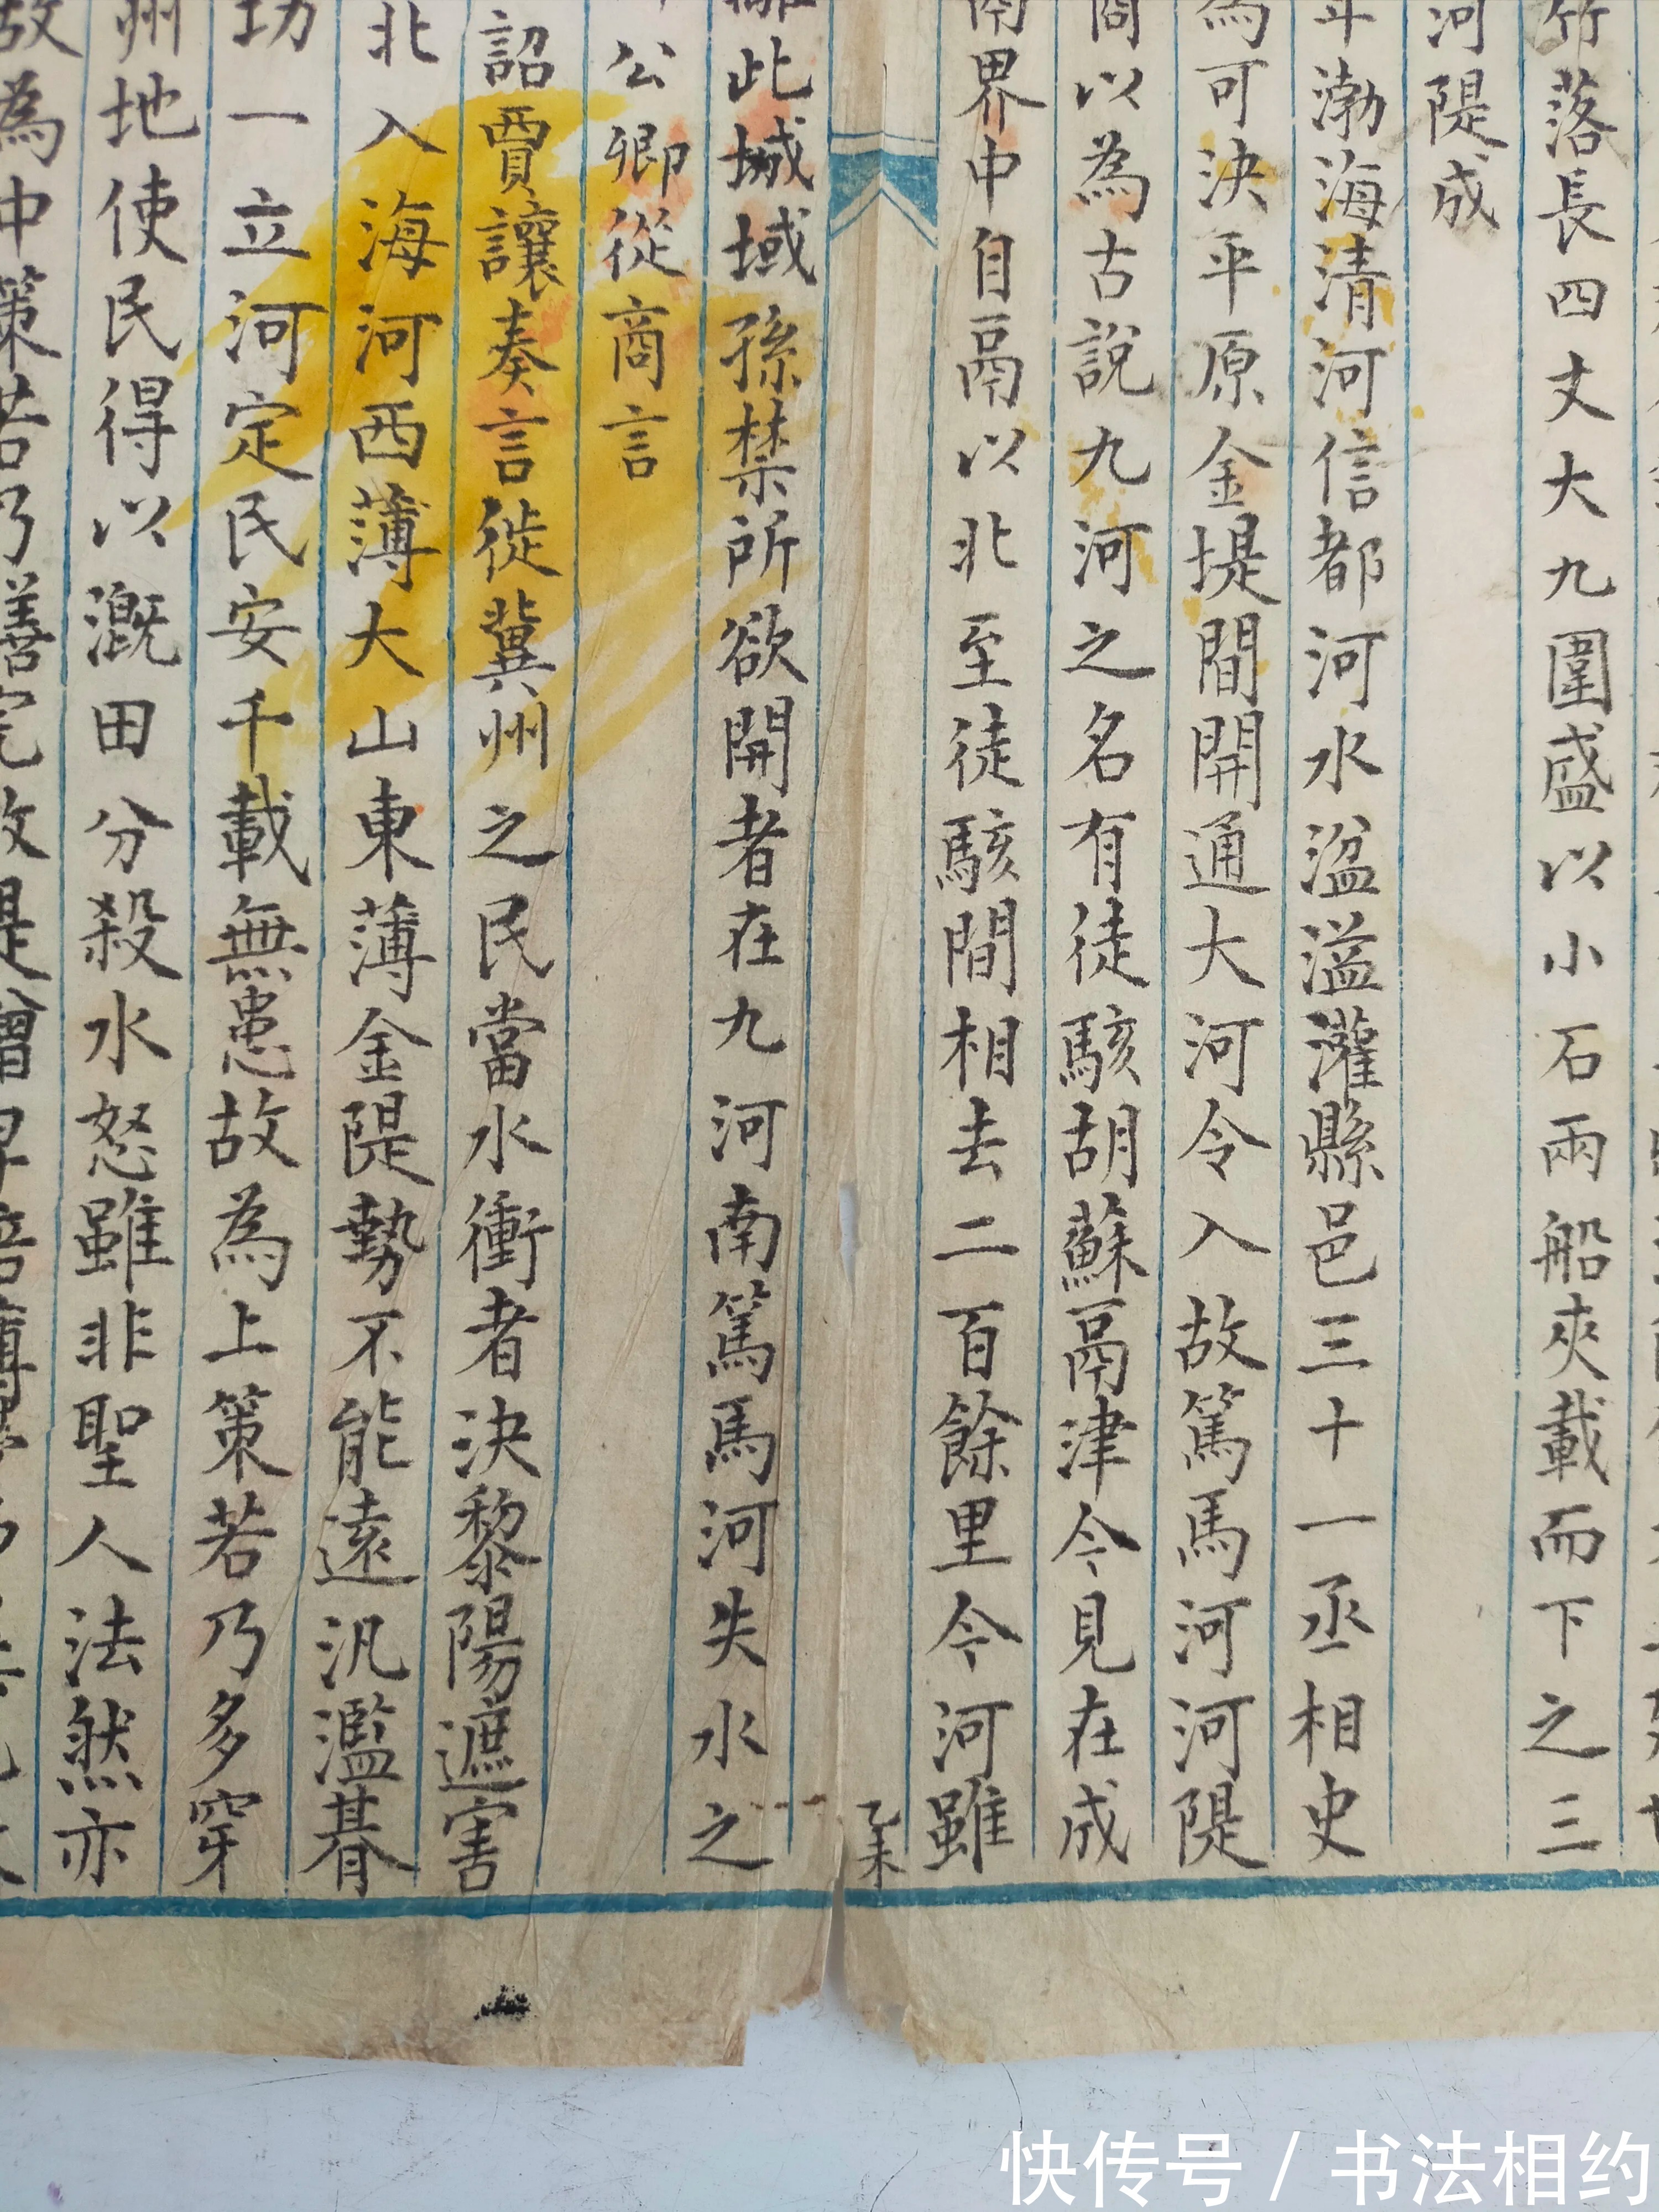 竹落長四丈大九圍盛以小石兩船夾載而下之三
河隄成
渤海清河信都河水湓溢灌縣邑三十一丞相史
為可決平原金堤間開通大河令入故篤馬河河隄
商以為古說九河之名有徒駭胡蘇鬲津今見在成
界中自鬲以北至徒駭間相去二百餘里今河雖
乙未
離此域域孫禁所欲開者在九河南篤馬河失水之
公卿從商言
詔賈讓奏言徙冀州之民當水衝者決黎陽遮害
北入海河西薄大山東薄金隄勢不能遠汎濫朞
功一立河定民安千載無患故為上策若乃多穿
州地使民得以溉田分殺水怒雖非聖人法然亦
故為中策若乃繕完故
快传号 / 书法相约